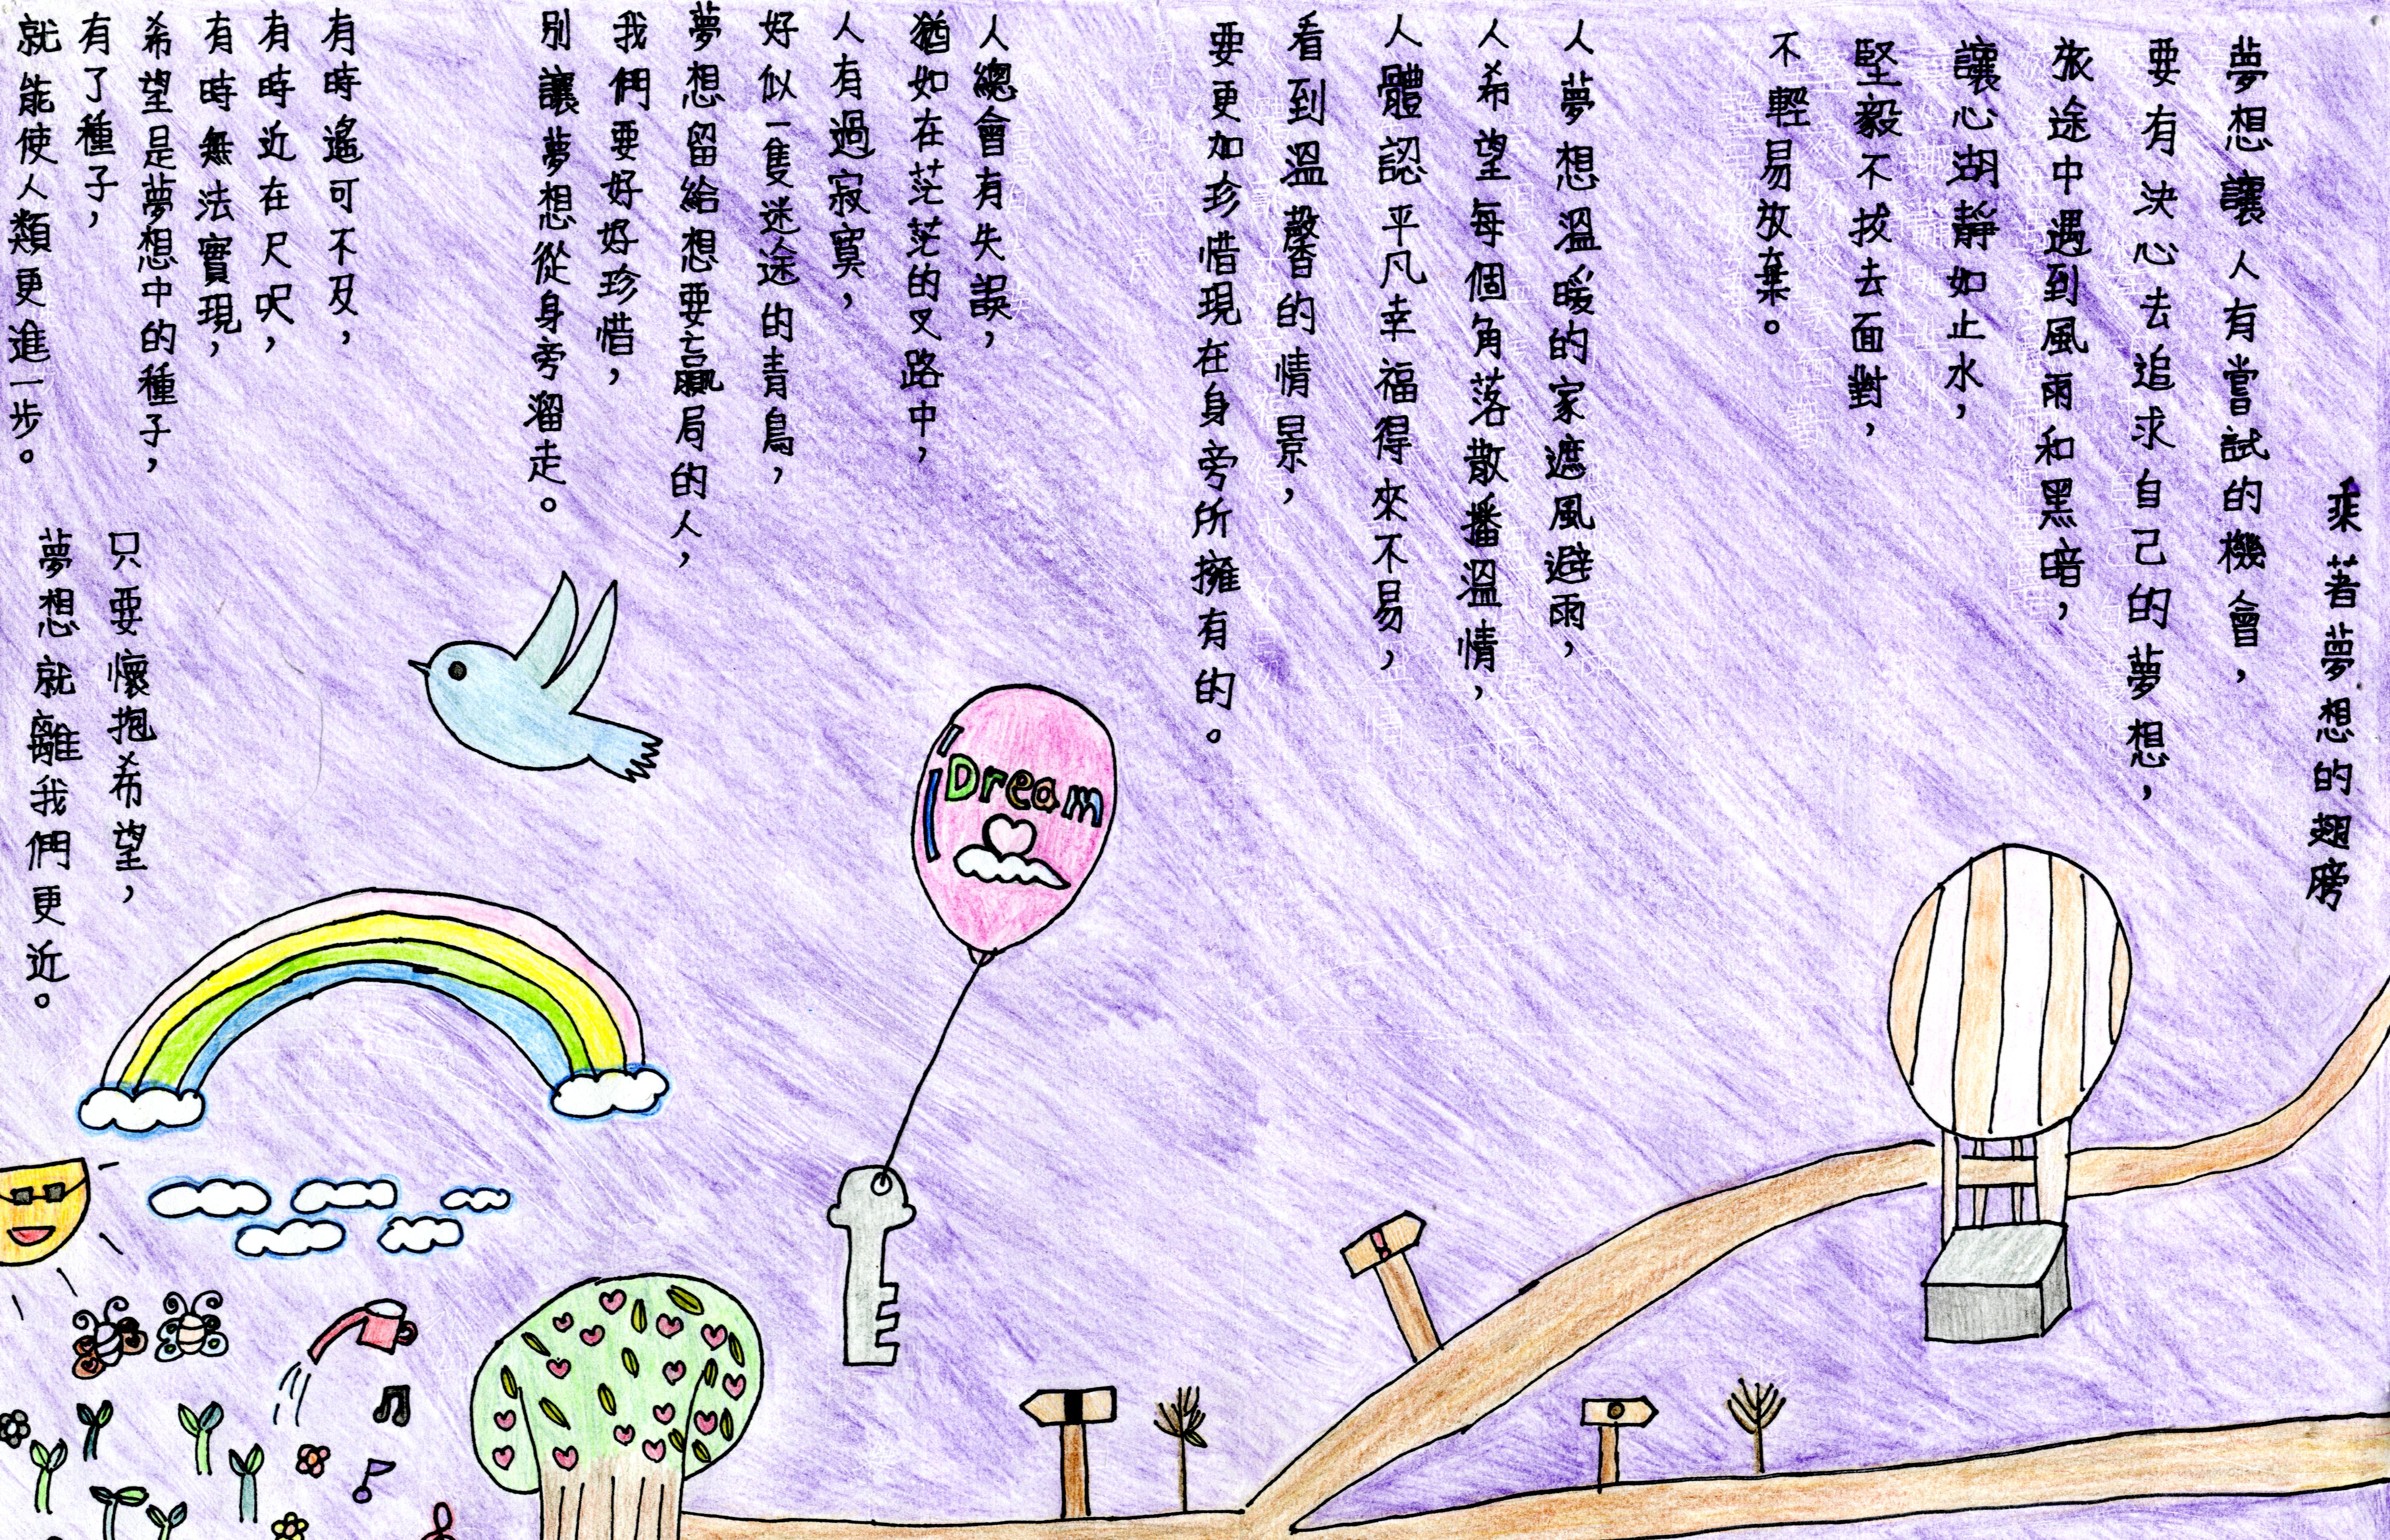 乘著夢想的翅膀
夢想讓人有嘗試的機會，
要有決心去追求自己的夢想，
旅途中遇到風雨和黑暗，
讓心湖靜如止水，
堅毅不拔去面對，
不輕易放棄。
人夢想溫暖的家遮風避雨，
人希望每個角落散播溫情，
人體認平凡幸福得來不易，
看到溫馨的情景，
要更加珍惜現在身旁所擁有的。
人總會有失誤，
猶如在茫茫的叉路中，
人有過寂寞，
好似一隻迷途的青鳥，
夢想留給想要贏局的人，
我們要好好珍惜，
別讓夢想從身旁溜走。
有時遙可不及，
有時近在尺呎，
有時無法實現，
希望是夢想中的種子，
有了種子，
就能使人類更進一步。
只要懷抱希望，
夢想就離我們更近。
Dream